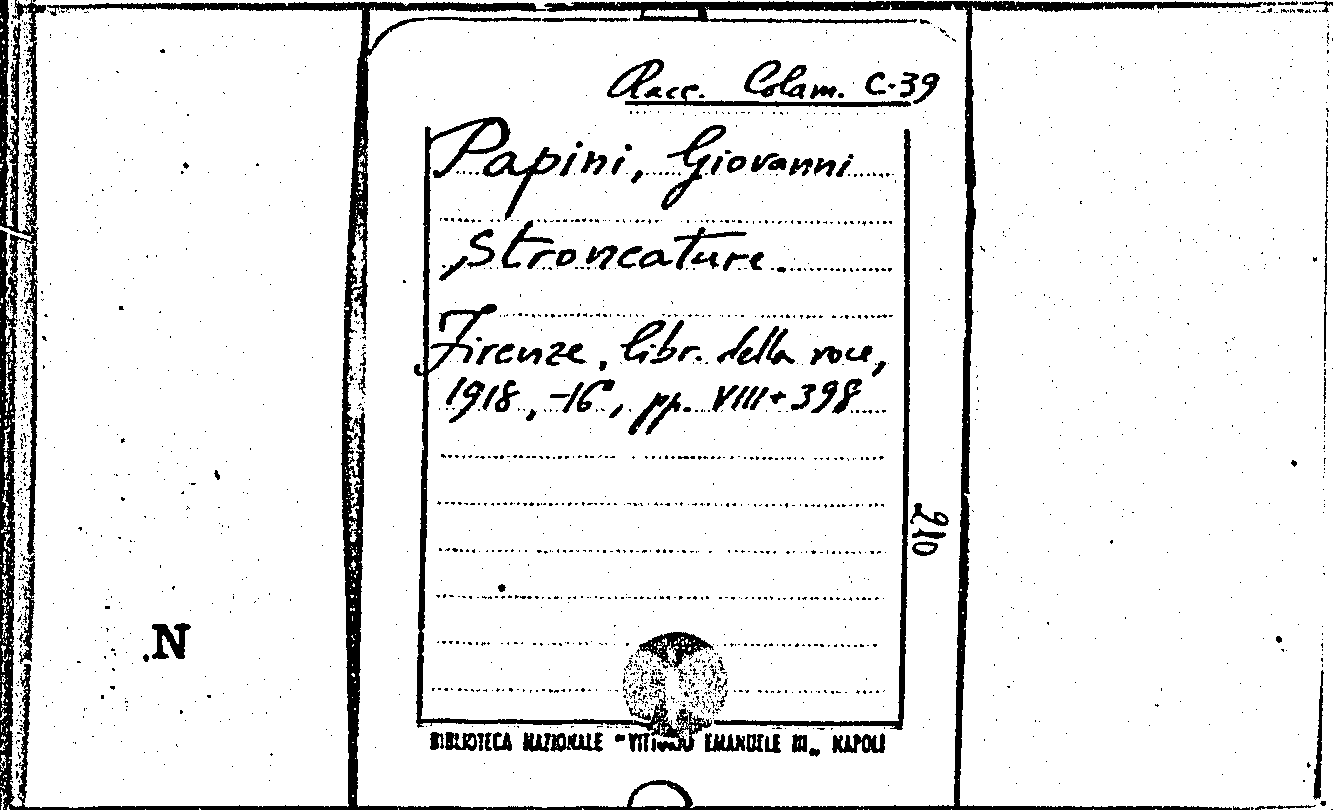 Racc. Colam. C-39
Papini, Giovanni
Stroncature.
Firenze, libr. della voce,
1918, -16°, pp. VIII+398
210
.N
BIBLIOTECA NAZIONALE "VITTORIO EMANUELE III„ NAPOLI